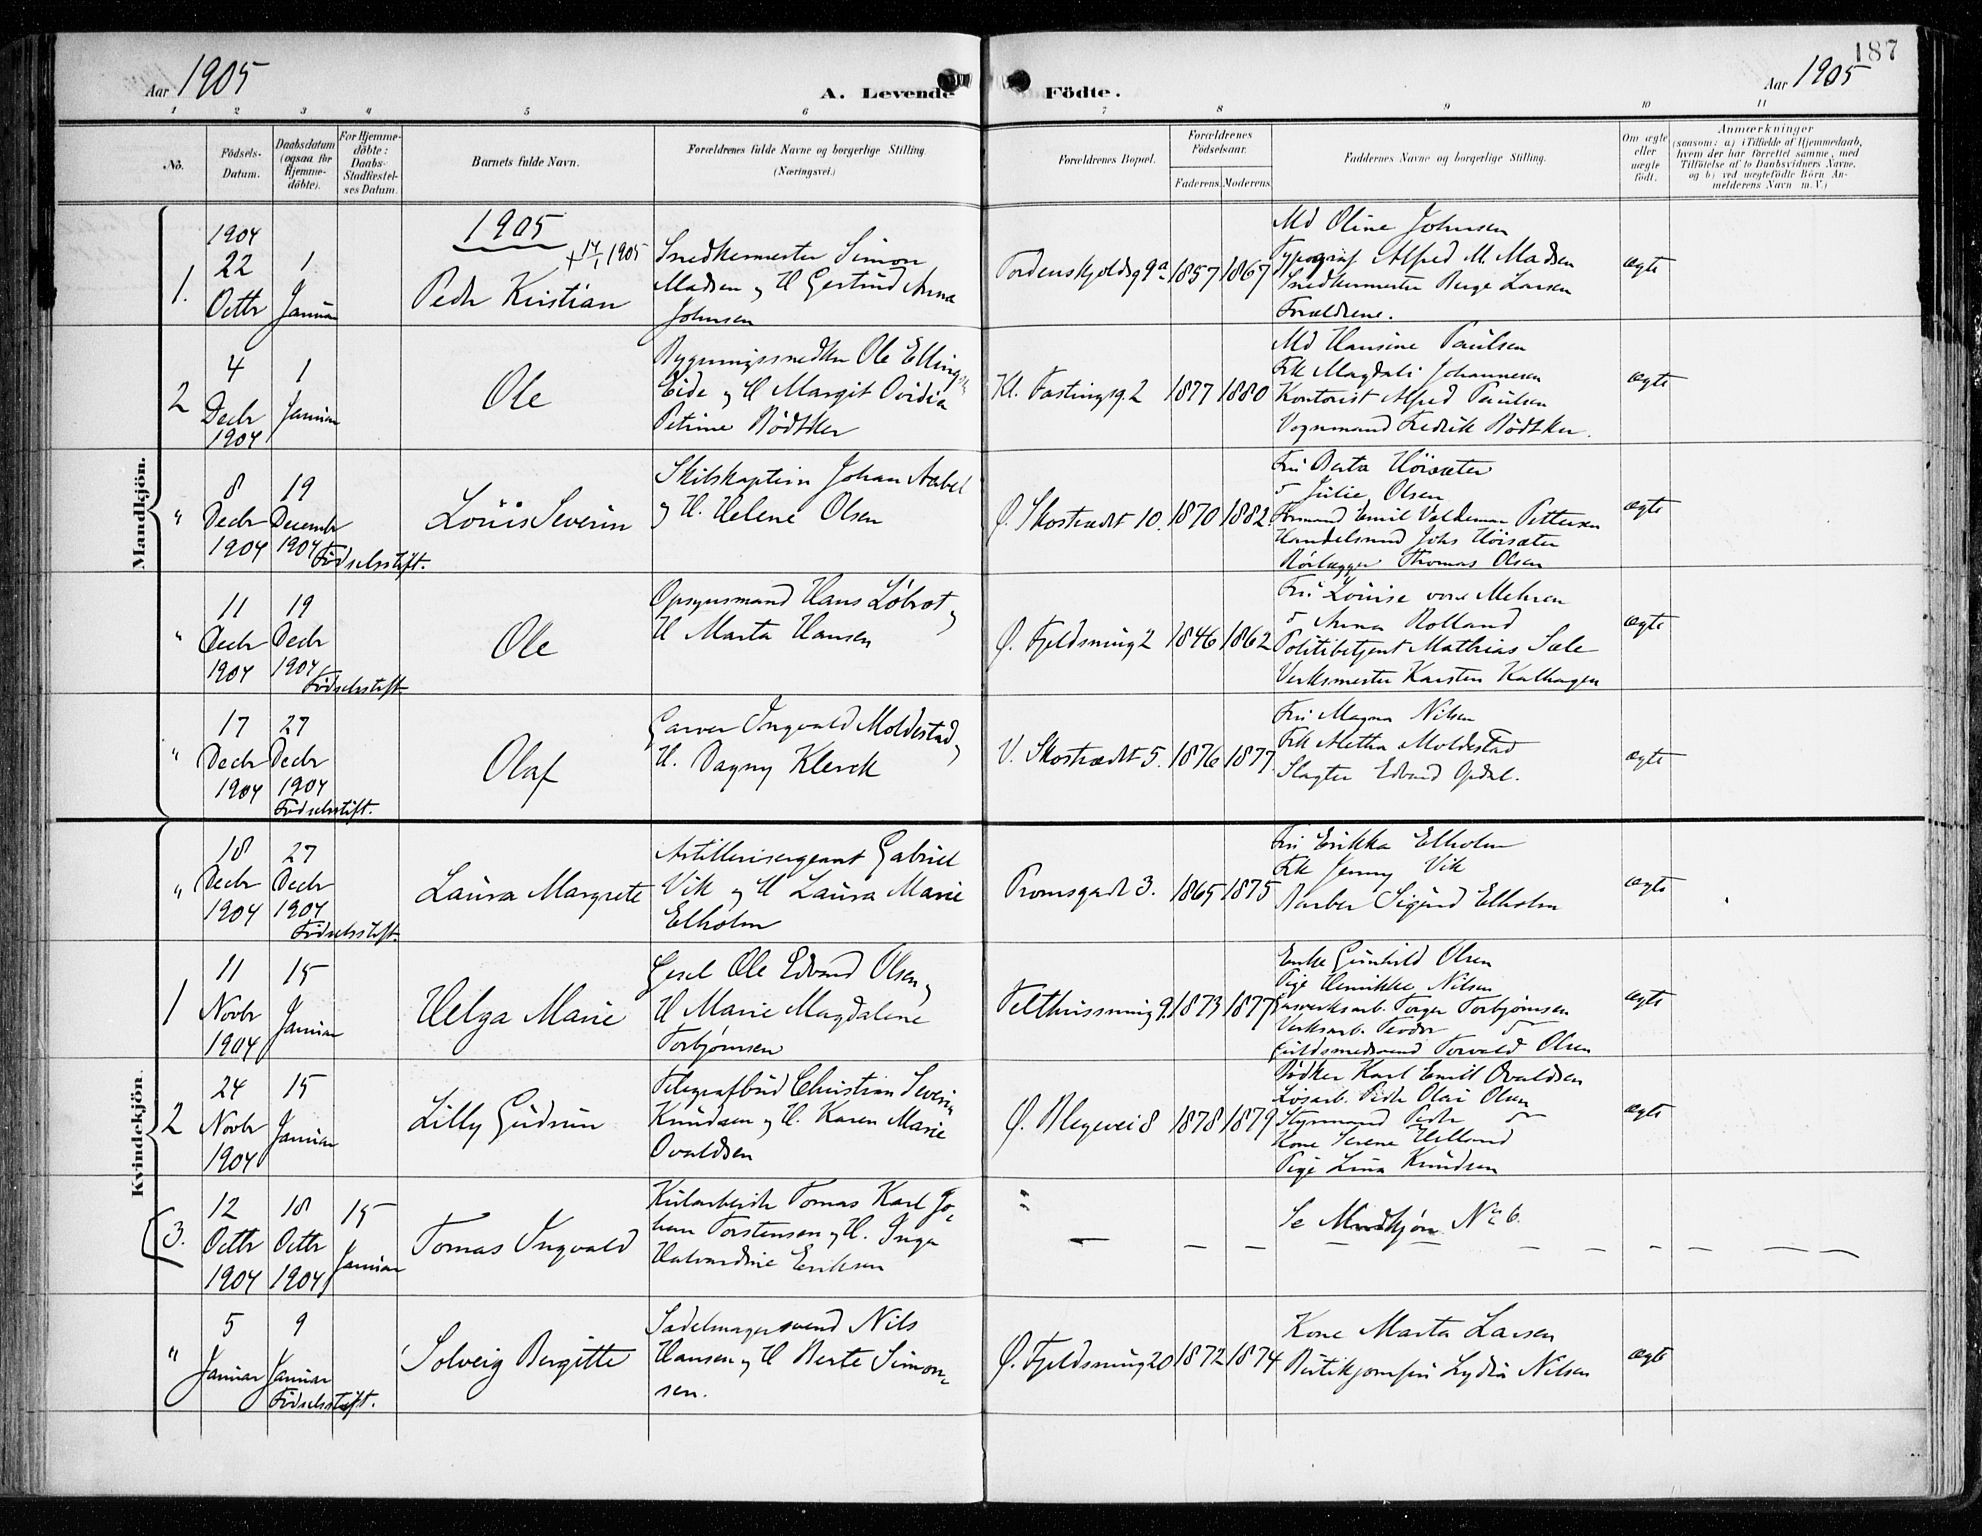 187
Aar 1905
A. Levende Födte.
Aar 1905
1 2 3 4 5 6 7 8 9 10 11
No.
Födsels-Datum.
Daabsdatum (ogsaa for Hjemme-döbte).
For Hjemme-döbte: Daabs-Stadfæstel-ses Datum.
Barnets fulde Navn.
Forældrenes fulde Navne og borgerlige Stilling.
(Næringsvei.)
Forældrenes Bopæl.
Forældrenes Födselsaar.
Faderens. Moderens.
Faddernes Navne og borgerlige Stilling.
Om ægte eller uægte födt.
Anmærkninger
(saasom: a) i Tilfælde af Hjemmedaab,
hvem der har forrettet samme, med
Tilföielse af to Daabsvidners Navne,
og b) ved uægtefödte Börn An-
melderens Navn m. V.)
Mandkjön.
1905
1.
1904
22
Octbr
1
Januar
+ 14/1 1905
Peder Kristian
Snedkermester Simon
Madsen og H Gertrud Anna
Johnsen
Tordenskjoldsg 9a
1857
1867
Md Oline Johnsen
Typograf Alfred M. Madsen
Snedkermester Berge Larsen
Forældrene.
ægte
2
4
Decbr
1904
1
Januar
Ole
Bygningssnedker Ole Ellingsen
Eide og H Margit Ovidia
Petrine Bödtker
Kl. Fastingsg. 2
1877
1880
Md Hansine Paulsen
Frk Magdali Johannesen
Kontorist Alfred Paulsen
Vognmand Fredrik Bödtker.
ægte
"
8
Decbr
1904
19
Decembr
1904
Födselsstift.
Louis Severin
Skibskaptein Johan Aabel
og H. Helene Olsen
Ø. Skostrædet 10.
1870
1882
Fru Berta Höisæter
" Julie Olsen
Formand Emil Valdemar Pettersen
Handelsmand Johs Höisæter
Rörlægger Thomas Olsen
ægte
"
11
Decbr
1904
19
Decbr
1904
Födselsstift
Ole
Opsynsmand Hans Löbrot og
H Marta Hansen
Ø. Fjeldsmug 2
1846
1862
Fru Louise von Mehren
" Anna Rolland
Politibetjent Mathias Sæle
Verksmester Karsten Kalhagen
ægte
"
17
Decbr
1904
27
Decbr
1904
Födselsstift.
Olaf
Garver Ingvald Moldestad og
H. Dagny Klerck
V. Skostrædet 5.
1876
1877
Fru Magna Nilsen
Frk Metha Moldestad
Slagter Edvard Opdal.
ægte
Kvindekjön.
"
18
Decbr
1904
27
Decbr
1904
Födselsstift.
Laura Margrete
Artillerisergeant Gabriel
Vik og H Laura Marie
Elholm
Promsgade 3.
1865
1875
Fru Erikka Elholm
Frk Jenny Vik
Barber Sigurd Elholm
ægte
1
11
Novbr
1904
15
Januar
Helga Marie
Gesel Ole Edvard Olsen og
H Marie Magdalene
Torbjörnsen
Felthussmug 9.
1873
1877
Enke Gunhild Olsen
Pige Henrikke Nilsen
Gasverksarb. Torger Torbjörnsen
Verksarb. Teodor "
Guldsmedsvend Torvald Olsen
ægte
2
24
Novbr
1904
15
Januar
Lilly Gudrun
Telegrafbud Christian Severin
Knudsen og H. Karen Marie
Ovaldsen
Ø. Blegevei 8
1878
1879
Bödker Karl Emil Ovaldsen
Lösarb. Peder Olai Olsen
Styrmand Peder "
Kone Serene Helland
Pige Lina Knudsen
ægte
(3.
12
Octbr
1904
18
Octbr
1904
15
Januar
Tomas Ingvald
Kularbeider Tomas Karl Jo-
han Torstensen og H. Inga
Halvardine Eriksen
"
Se Mandkjön No 6.
"
5
Januar
9
Januar
Födselsstift.
Solveig Bergitte
Sadelmagersvend Nils
Hansen og H Berte Simon-
sen.
Ø. Fjeldsmug 20
1872
1874
Kone Marta Larsen
Butikjomfru Lydia Nilsen
ægte